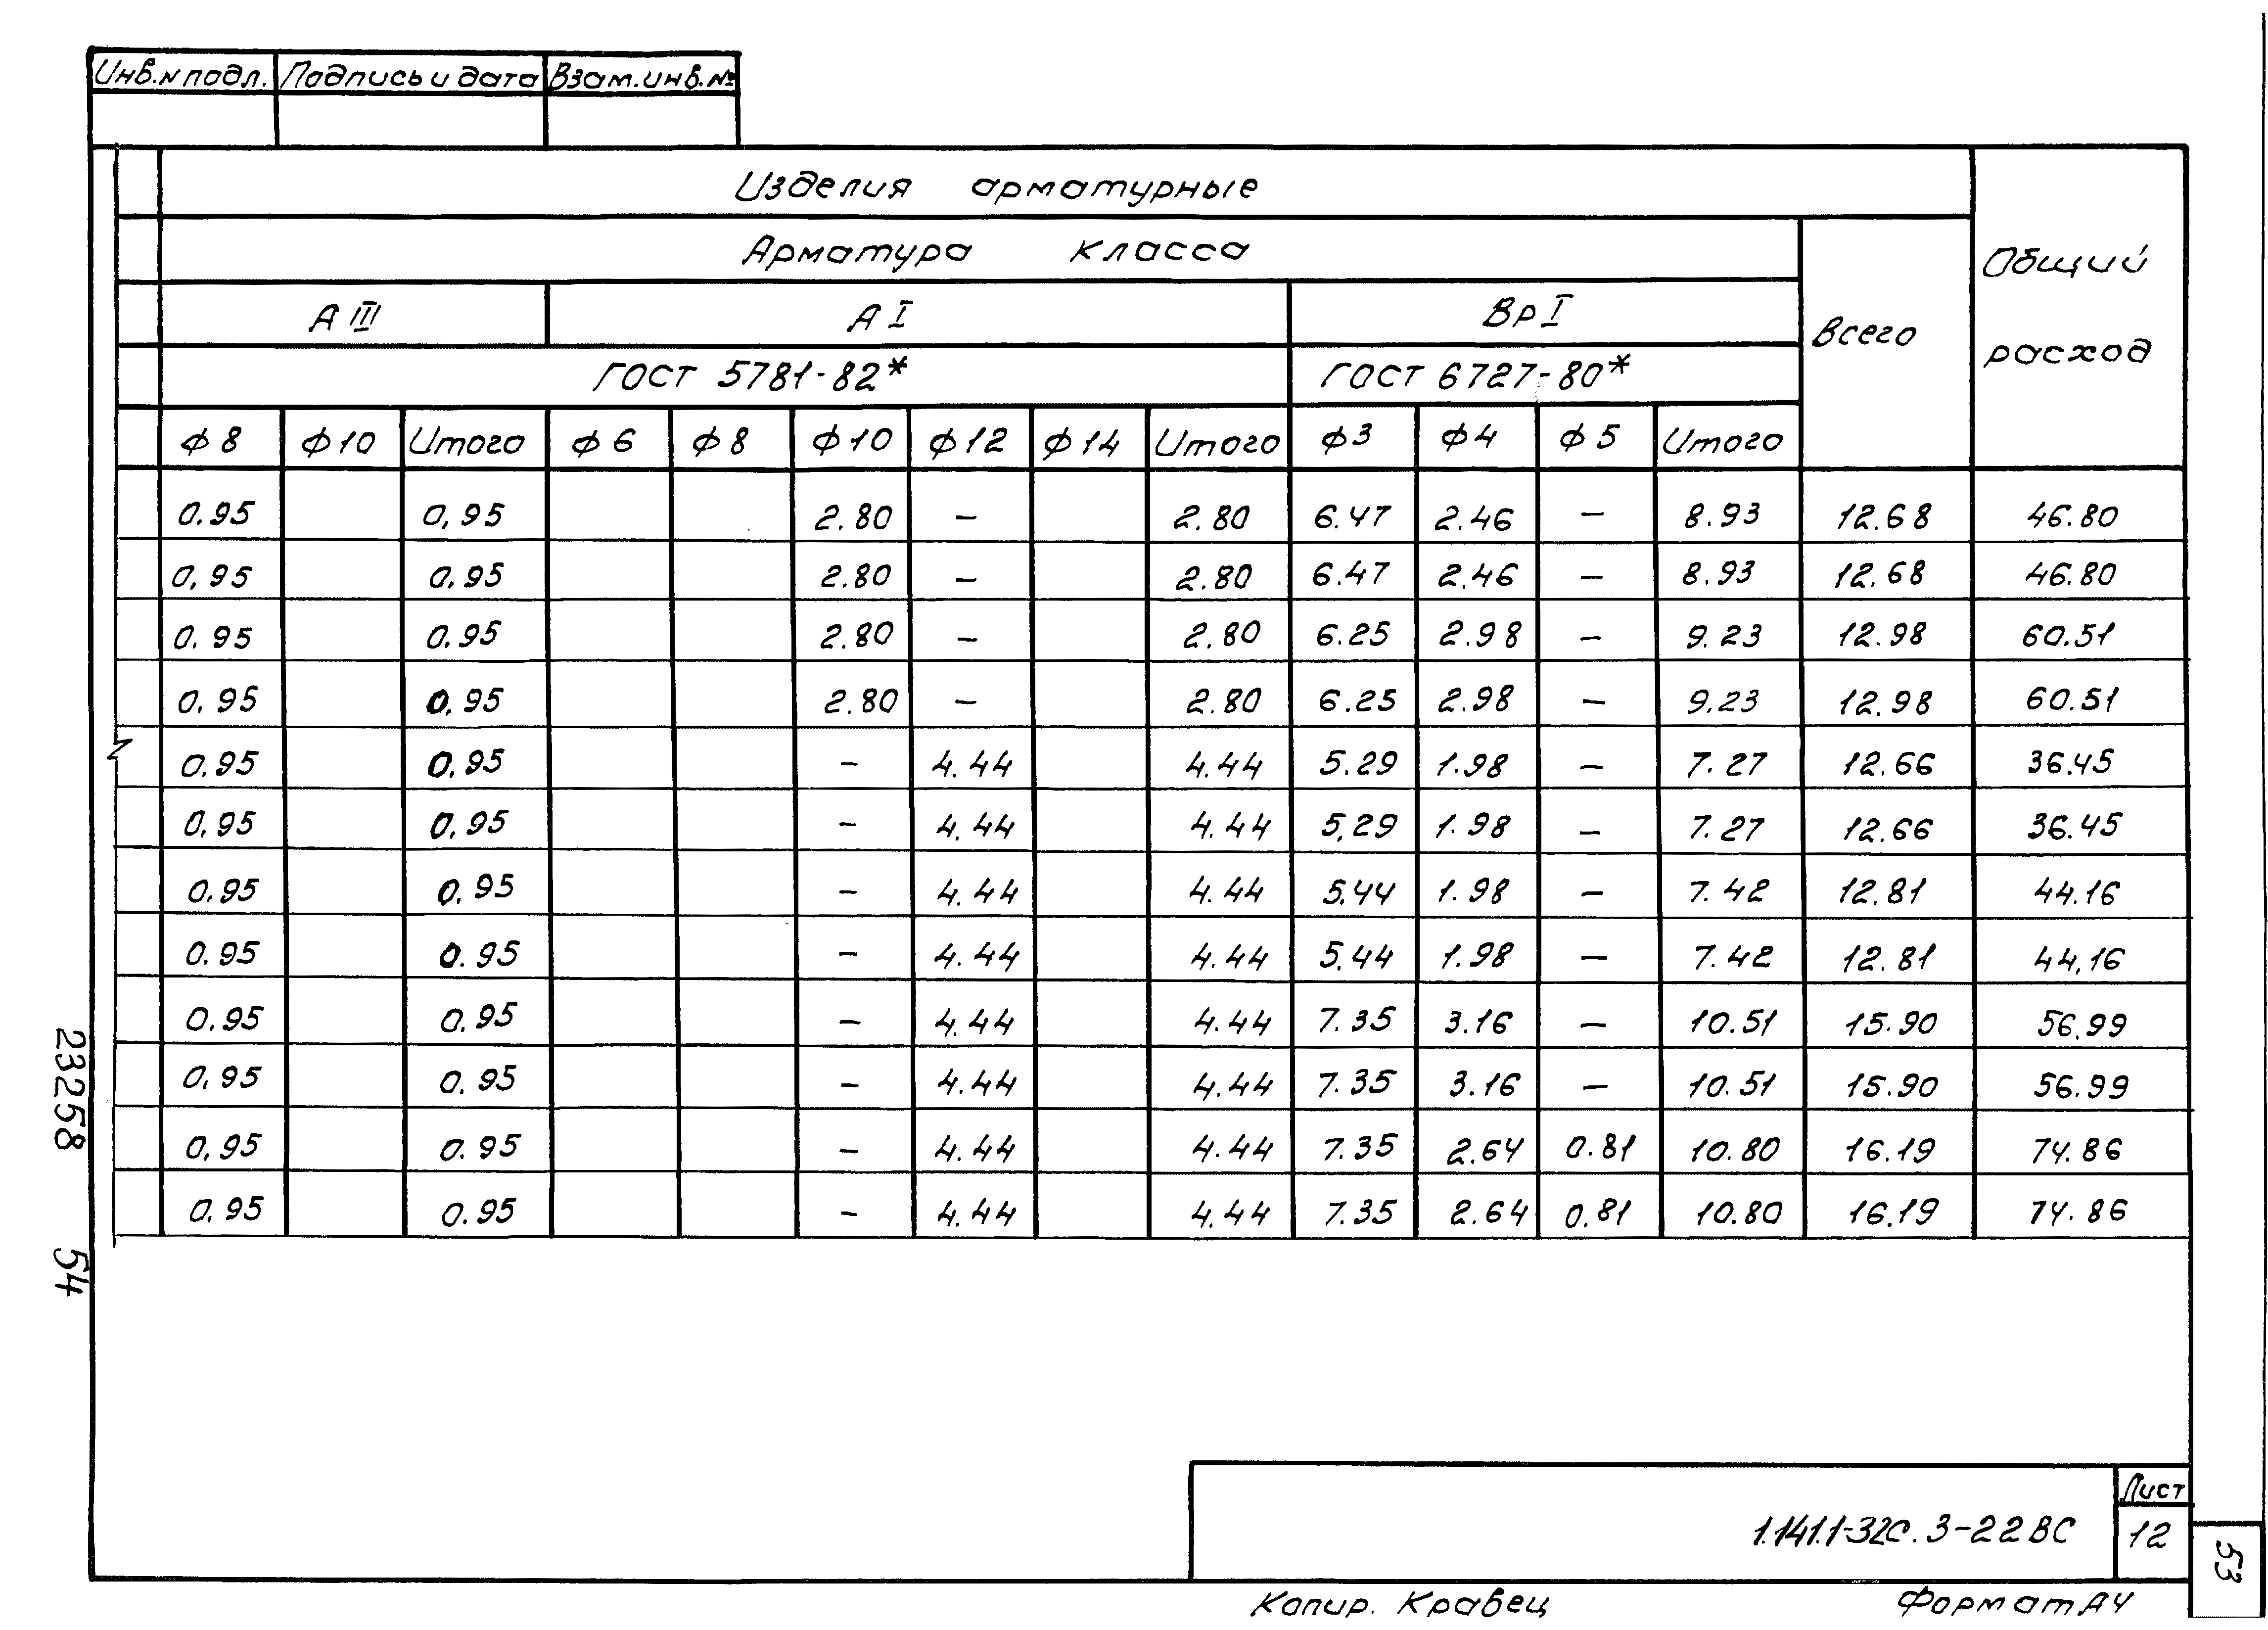 Инв.N подл. Подпись и дата Взам.инв.№
Изделия арматурные
Общий расход
Арматура класса
Всего
А III А I Вр I
ГОСТ 5781-82* ГОСТ 6727-80*
ф8 ф10 Итого ф6 ф8 ф10 ф12 ф14 Итого ф3 ф4 ф5 Итого
0.95 0,95 2.80 – 2.80 6.47 2.46 – 8.93 12.68 46.80
0,95 0.95 2.80 – 2.80 6.47 2.46 – 8.93 12.68 46.80
0.95 0.95 2.80 – 2.80 6.25 2.98 – 9.23 12.98 60.51
0.95 0,95 2.80 – 2.80 6.25 2.98 – 9.23 12.98 60.51
0.95 0.95 – 4.44 4.44 5.29 1.98 – 7.27 12.66 36.45
0,95 0,95 – 4.44 4.44 5,29 1.98 – 7.27 12.66 36.45
0,95 0.95 – 4.44 4.44 5.44 1.98 – 7.42 12.81 44.16
0.95 0.95 – 4.44 4.44 5.44 1.98 – 7.42 12.81 44,16
0.95 0.95 – 4.44 4.44 7.35 3.16 – 10.51 15.90 56.99
0,95 0.95 – 4.44 4.44 7.35 3.16 – 10.51 15.90 56.99
0,95 0.95 – 4.44 4.44 7.35 2.64 0.81 10.80 16.19 74.86
0.95 0.95 – 4.44 4.44 7.35 2.64 0.81 10.80 16.19 74.86
23258 54
1.141.1-32с.3-22ВС
Лист
12
53
Копир. Кравец Формат А4